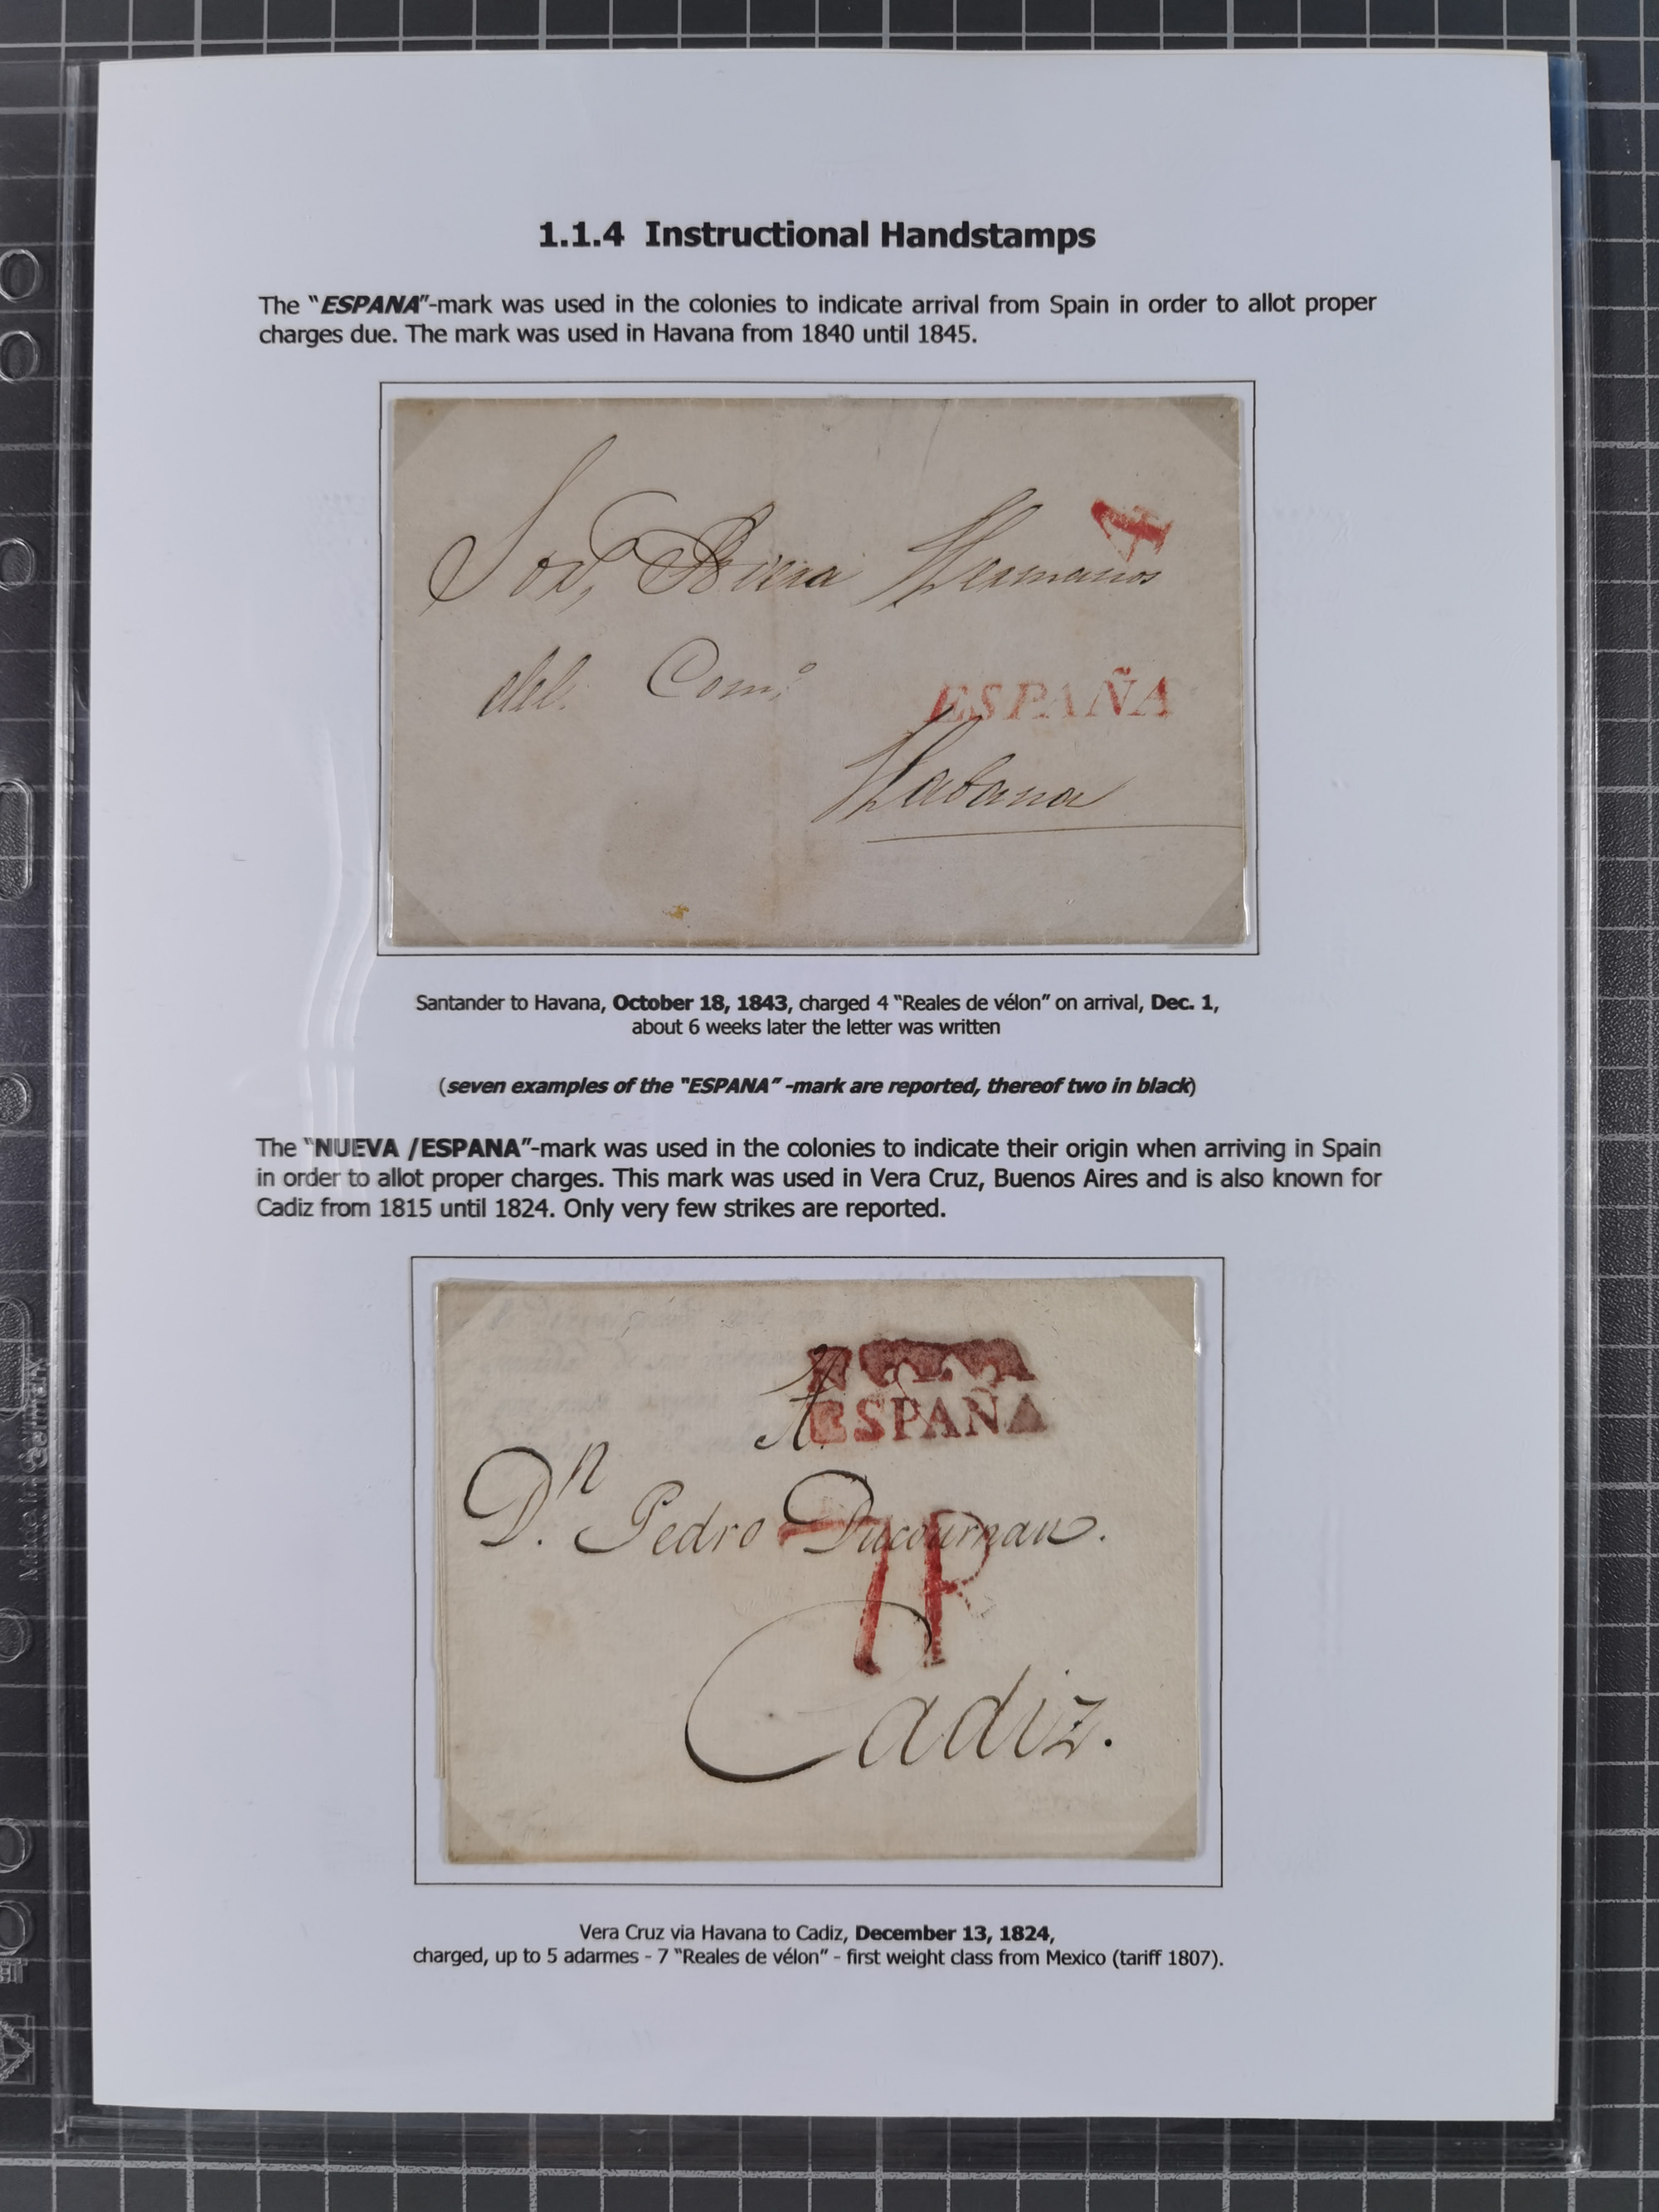 1.1.4 Instructional Handstamps
The “ESPANA”-mark was used in the colonies to indicate arrival from Spain in order to allot proper
charges due. The mark was used in Havana from 1840 until 1845.
4
Hermanos
del Como
ESPAÑA
Habana
Santander to Havana, October 18, 1843, charged 4 “Reales de vélon” on arrival, Dec. 1,
about 6 weeks later the letter was written
(seven examples of the “ESPANA” -mark are reported, thereof two in black)
The “NUEVA /ESPANA”-mark was used in the colonies to indicate their origin when arriving in Spain
in order to allot proper charges. This mark was used in Vera Cruz, Buenos Aires and is also known for
Cadiz from 1815 until 1824. Only very few strikes are reported.
NUEVA
A
ESPAÑA
Dn Pedro Ducournau.
7R
Cadiz.
Vera Cruz via Havana to Cadiz, December 13, 1824,
charged, up to 5 adarmes - 7 “Reales de vélon” - first weight class from Mexico (tariff 1807).
Made in Germany